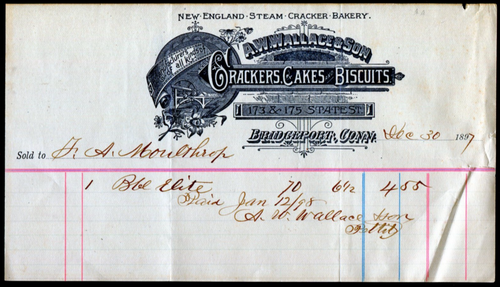 NEW ENGLAND STEAM CRACKER BAKERY.
A.W. WALLACE & SON
CRACKERS, CAKES AND BISCUITS.
173 & 175 STATE ST.
BRIDGEPORT, CONN. Dec 30 1897
Sold to F. A. Moulthrop
1 Bbl Elite 70 6 1/2 4 55
Paid Jan 12/98
A. W. Wallace & Son